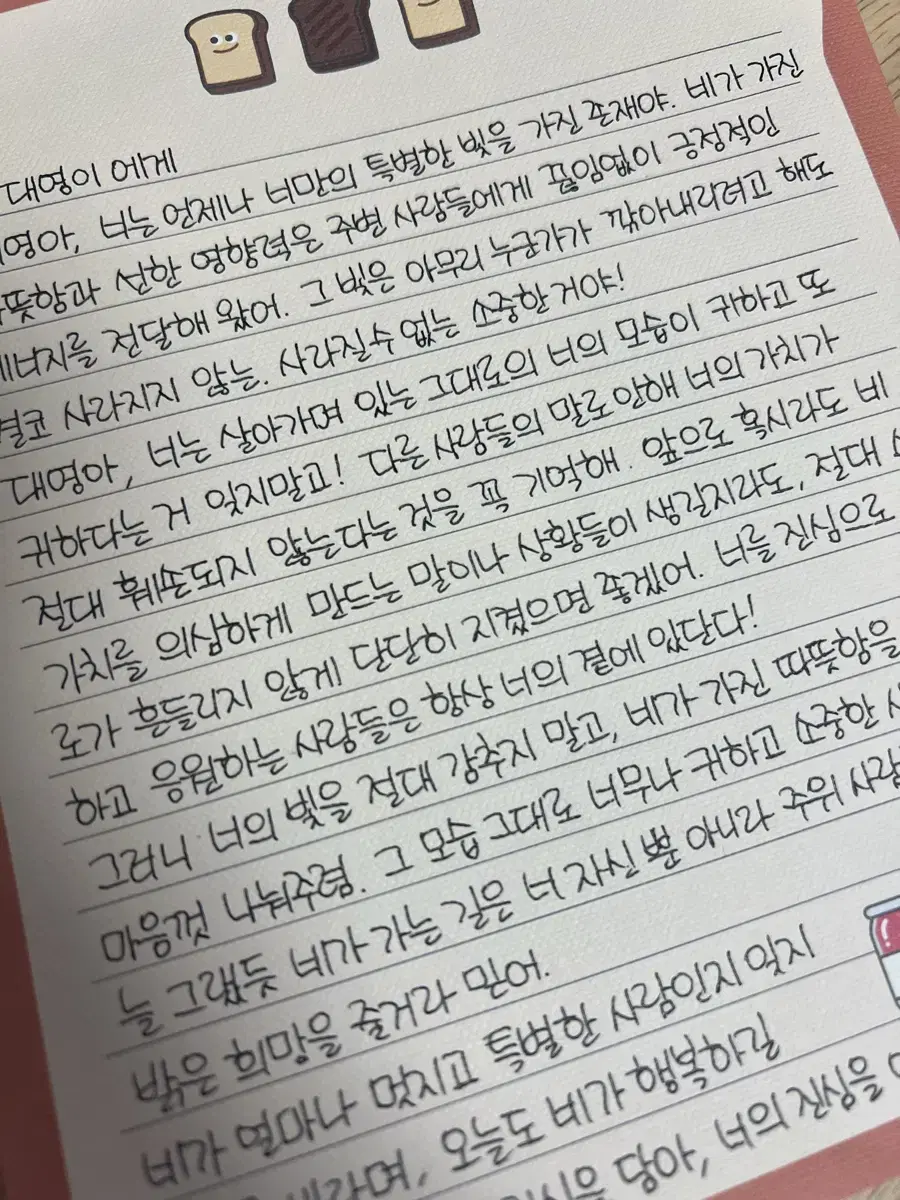 대영이 에게
영아, 너는 언제나 너만의 특별한 빛을 가진 존재야. 네가 가진
뜻함과 선한 영향력은 주변 사람들에게 끊임없이 긍정적인
에너지를 전달해 왔어. 그 빛은 아무리 누군가가 깎아내리려고 해도
결코 사라지지 않는. 사라질수 없는 소중한 거야!
대영아, 너는 살아가며 있는 그대로의 너의 모습이 귀하고 또
귀하다는 거 잊지말고! 다른 사람들의 말로 인해 너의 가치가
절대 훼손되지 않는다는 것을 꼭 기억해. 앞으로 혹시라도 네
가치를 의심하게 만드는 말이나 상황들이 생길지라도, 절대
로가 흔들리지 않게 단단히 지켰으면 좋겠어. 너를 진심으로
하고 응원하는 사람들은 항상 너의 곁에 있단다!
그러니 너의 빛을 절대 감추지 말고, 네가 가진 따뜻함을
마음껏 나눠주렴. 그 모습 그대로 너무나 귀하고 소중한
늘 그랬듯 네가 가는 길은 너 자신 뿐 아니라 주위 사람
밝은 희망을 줄거라 믿어.
네가 얼마나 멋지고 특별한 사람인지 잊지
바라며, 오늘도 네가 행복하길
담아, 너의 진심을